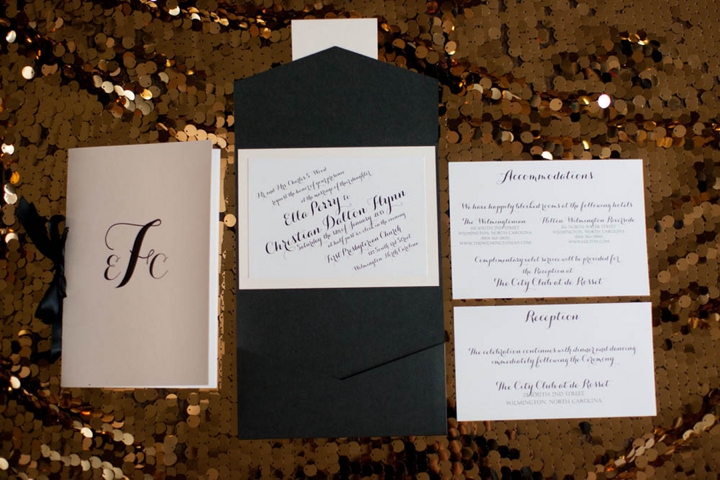 E F C
Mr. and Mrs. Charles S. Wood
request the honor of your presence
at the marriage of their daughter
Ella Perry to
Christian Dalton Flynn
Saturday the of January
at half past six o'clock in the evening
First Presbyterian Church
South 3rd Street
Wilmington North Carolina
Accommodations
We have happily blocked rooms at the following hotels
The Wilmingtonian Hilton Wilmington Riverside
WILMINGTON, NORTH CAROLINA WILMINGTON, NORTH CAROLINA
Complimentary valet service will be provided for
the Reception at
The City Club at de Rosset
Reception
The celebration continues with dinner and dancing
immediately following the Ceremony
The City Club at de Rosset
2ND STREET
WILMINGTON, NORTH CAROLINA